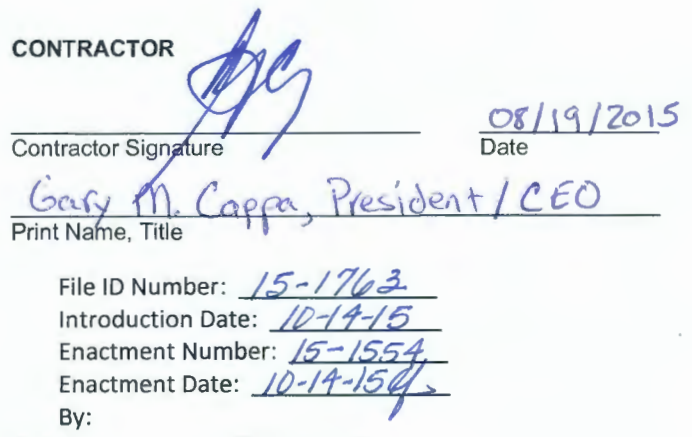 CONTRACTOR
08/19/2015
Contractor Signature Date
Gary M. Cappa, President / CEO
Print Name, Title
File ID Number: 15-1763
Introduction Date: 10-14-15
Enactment Number: 15-1554
Enactment Date: 10-14-15
By: